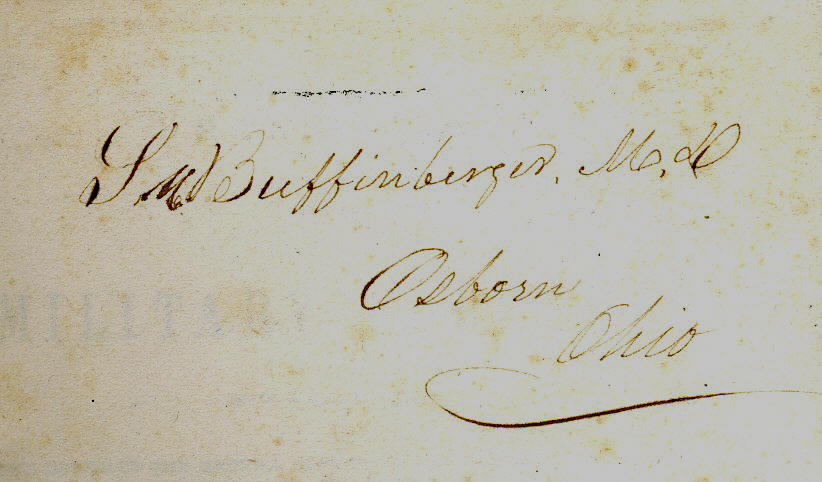 Buffinberger, M.D
Osborn
Ohio